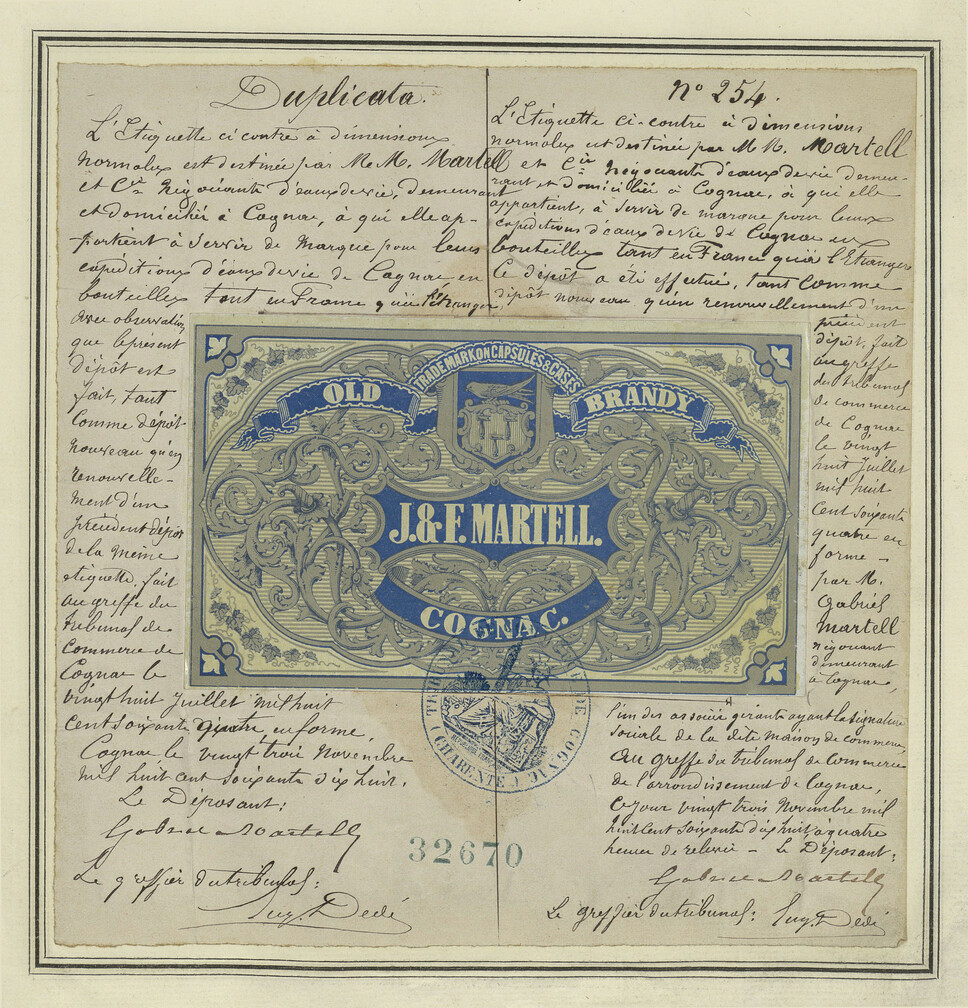 Duplicata.
L'Etiquette ci contre à dimensions
normales est destinée par M.M. Martell
et Cie Négociants d'eaux de vie, demeurant
et domiciliés à Cognac, à qui elle ap-
partient à servir de Marque pour leurs
expéditions d'eaux de vie de Cognac en
bouteilles tant en France qu'à l'Etranger
avec observation
que le présent
dépôt est
fait, tant
comme dépôt
nouveau qu'en
renouvelle-
ment d'un
précédent dépôt
de la même
etiquette, fait
au greffe du
tribunal de
Commerce de
Cognac le
vingt huit Juillet mil huit
cent soixante quatre, en forme,
Cognac le vingt trois Novembre
mil huit cent soixante dix huit.
Le Déposant:
Gabriel Martell
Le greffier du tribunal:
Eug. Dedé
N° 254.
L'Etiquette ci-contre à dimensions
normales est destinée par M M. Martell
et Cie Négociants d'eaux de vie demeu-
rant et domiciliés à Cognac, à qui elle
appartient, à servir de marque pour leurs
expéditions d'eaux de vie de Cognac en
bouteilles tant en France qu'à l'Etranger
Ce dépôt a été effectué, tant comme
dépôt nouveau qu'en renouvellement d'un
précédent
dépôt, fait
au greffe
du tribunal
de commerce
de Cognac
le vingt
huit Juillet
mil huit
cent soixante
quatre en
forme -
par M.
Gabriel
Martell
négociant
demeurant
à Cognac,
l'un des associés gérants ayant la signature
sociale de la dite maison de commerce,
Au greffe du tribunal de Commerce
de l'arrondissement de Cognac,
ce jour vingt trois Novembre mil
huit cent soixante dix huit à quatre
heures de relevée - Le Déposant:
Gabriel Martell
Le greffier du tribunal: Eug. Dedé
TRADE MARK ON CAPSULES & CASES
OLD BRANDY
J. & F. MARTELL.
COGNAC.
DE COGNAC
(CHARENTE)
32670